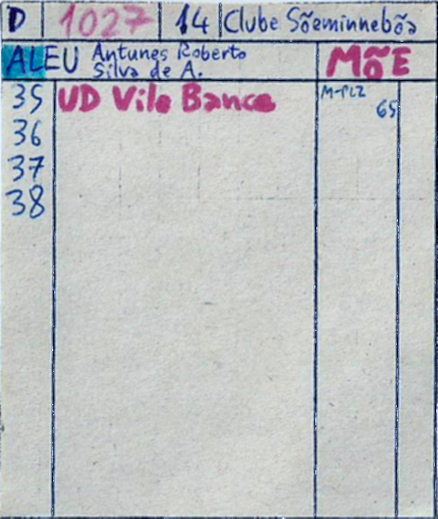 D 1027 14 Clube Sõeminnebõa
ALEU Antunes Roberto Silva de A. MÕE
35 UD Vila Bance M-PLZ 65
36
37
38